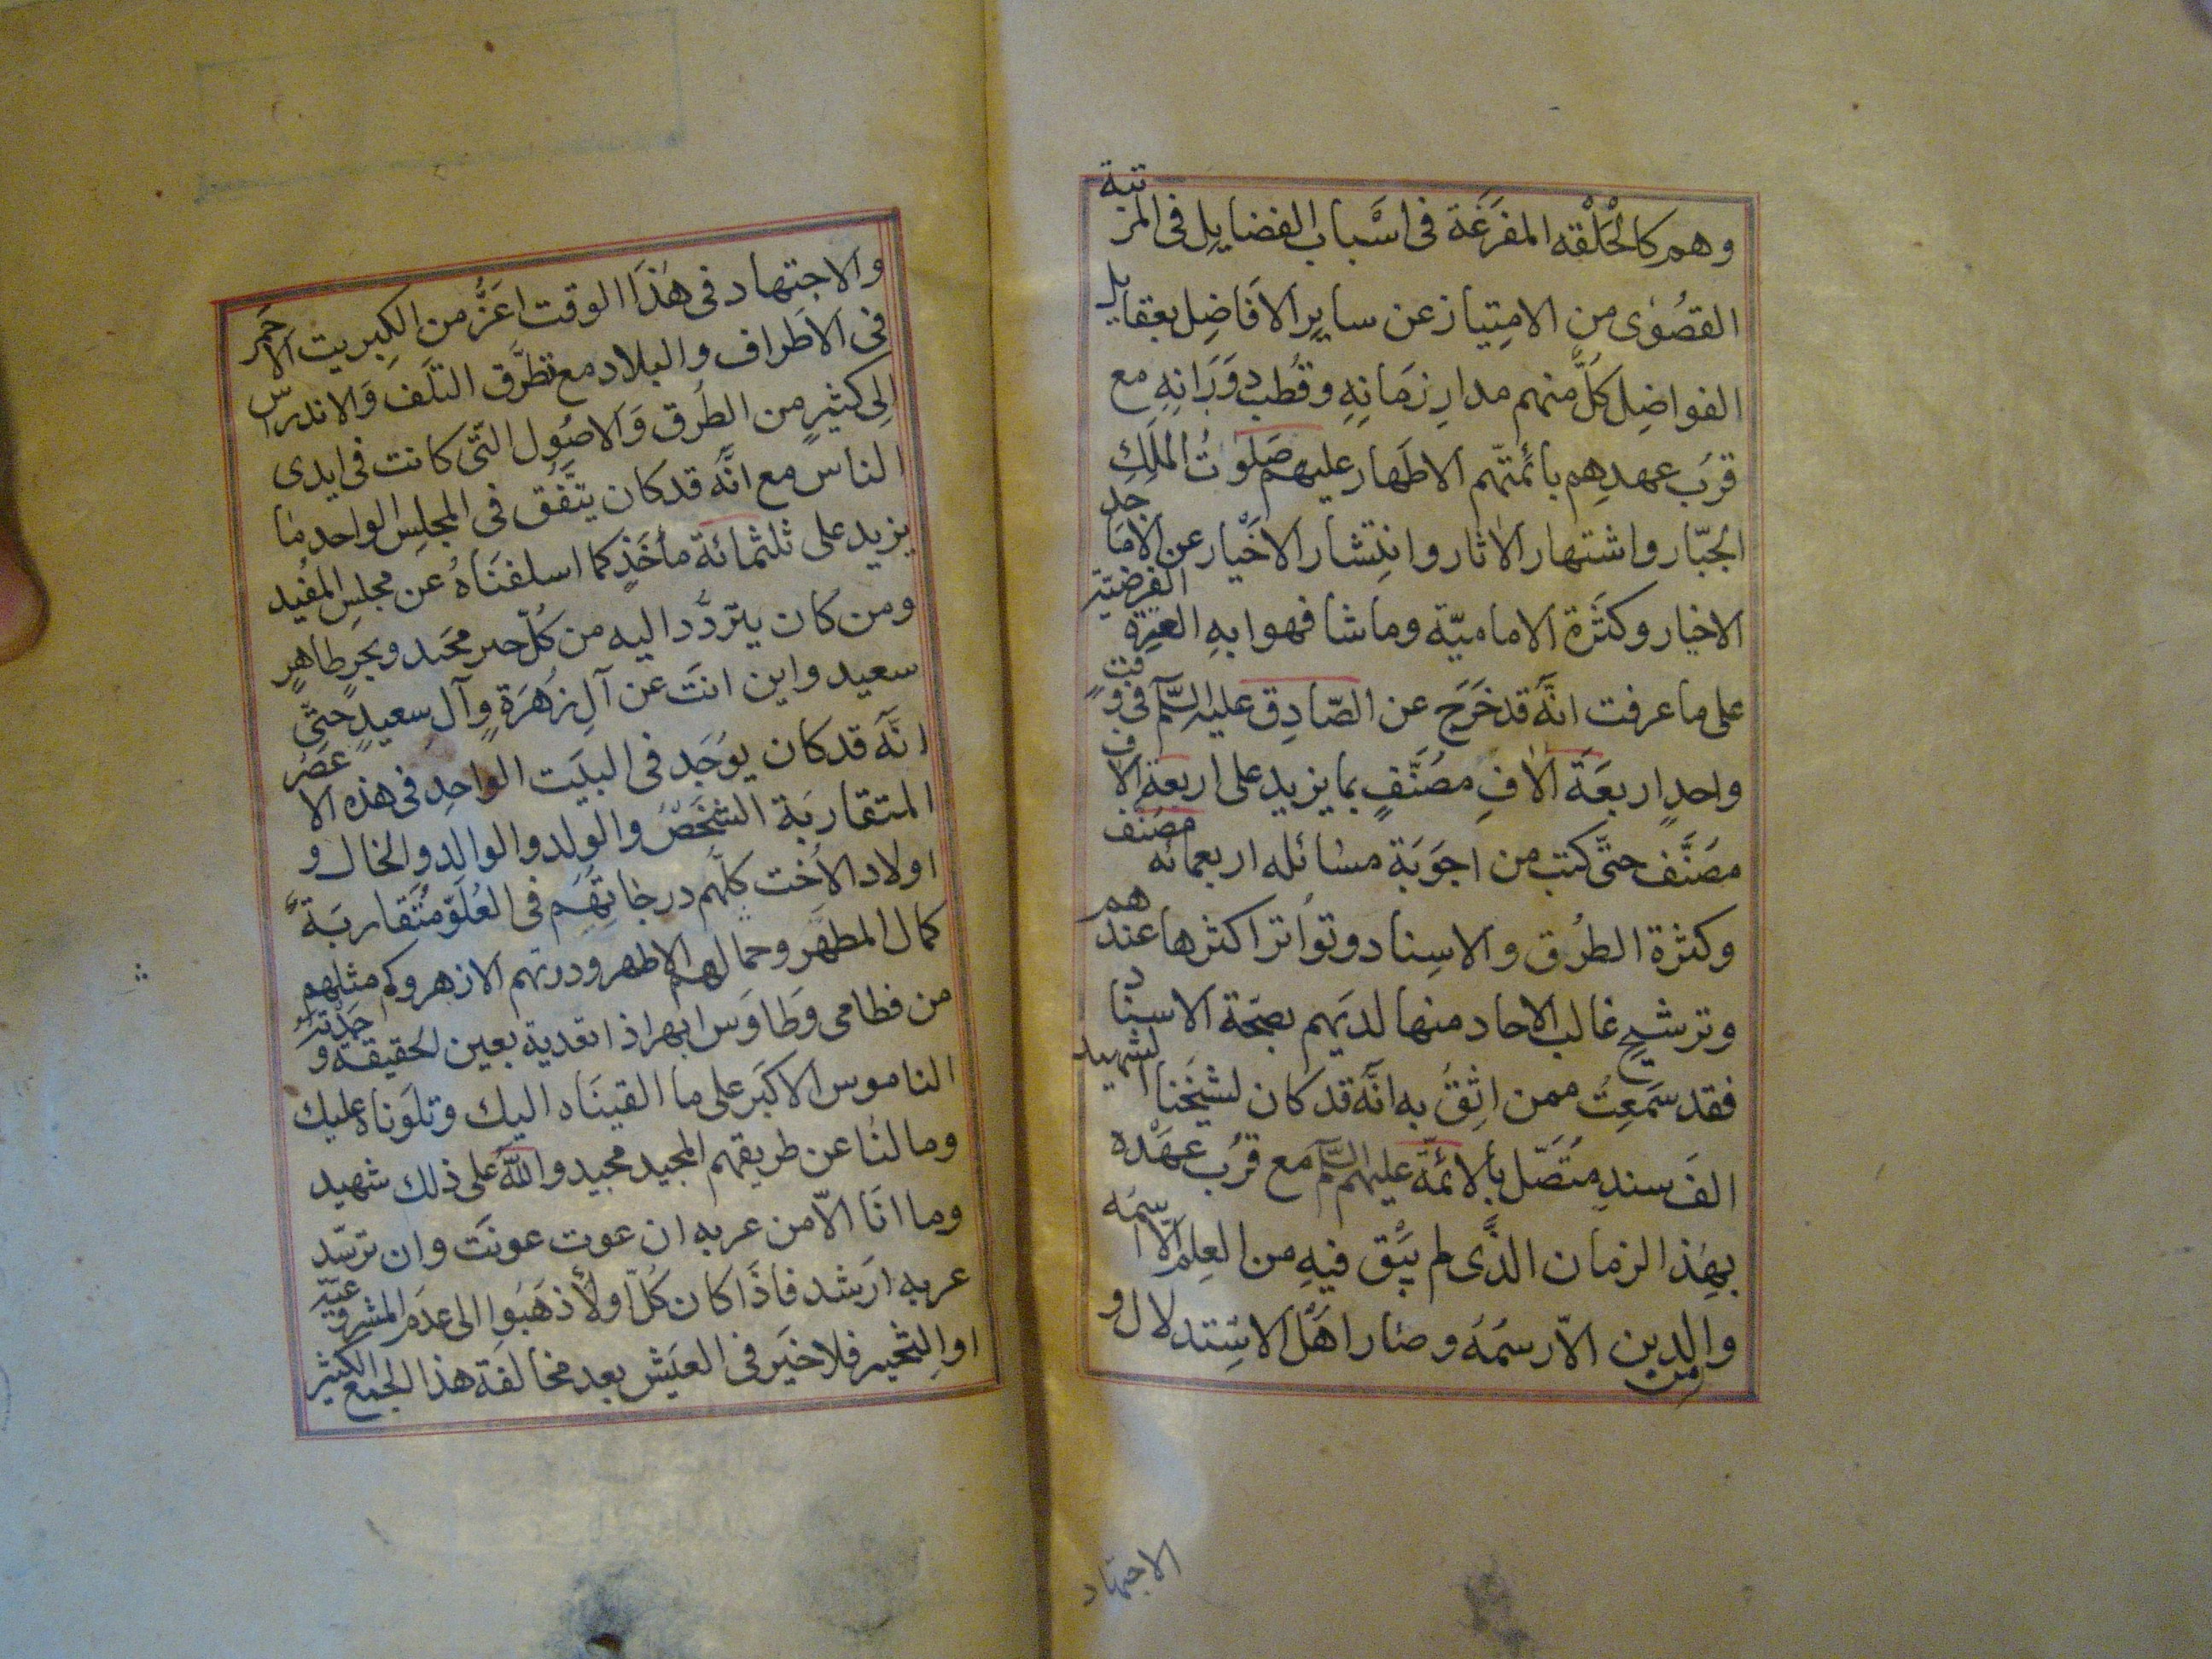 وهم كالحَلْقه المفرَغَة فى اسْباب الفضايل فى المرتبة
القصُوٰى من الامتِياز عن سايرِ الافَاضِل بعقايل
الفواضِل كُلٌّ منهم مدارِ زمَانِهِ وقُطب دوَرَانِهِ مع
قربَ عهدِهِم بائمّتهم الاطهار عليهم صَلوتُ المَلِكِ
الجبّار واشتهار الاثار وانتِشار الاخْيار عن الامَاجد
الاخيار وكثَرة الاماميّة وما شافهوا بهِ العترة الفرضيّة
على ما عرفت انّه قد خَرَج عن الصّادِق عليه السّلم فى وقتٍ
واحدٍ اربعَة الافِ مصَنّفٍ بما يزيد على اربعة الاف
مصَنَّف حتّى كتب من اجوَبَة مسٰائله اربعمائه مصنف
وكثرة الطرُق والاسِناد وتواتر اكثرها عندهم
وترشيح غالب الاحاد منها لديَهم بصحّة الاسنٰاد
فقد سَمَعِتُ ممن اثِقُ به انّه قد كان لشيَخنا الشهيد
الفَ سندٍ متَصّل بالائمّة عليهم السّلم مع قرُب عهْده
بهِذا الزمان الذّى لم يبَق فيهِ من العِلم الّا اسِمُه
والدين الّا رسمُهُ وصٰار اهْل الاسِتدلال و
من
الاجتهاد
والاجتهاد فى هٰذَا الوقت اعَزُّ من الكِبريت الاحَمر
فى الاطراف والبلاد مع تطَرّق التلَف وَالاندراس
الِى كثيرٍ من الطُرق وَالاصُول الّتى كانت فى ايدى
الناس مع انّه قد كان يتّفُق فى المجلِس الواحد مٰا
يزيد على ثلثمائة مأخَذٍ كما اسلفنَاهُ عن مجلس المفُيد
ومن كان يترّدُّد اليه من كُلّ حبر محمد وبحرٍ طاهرٍ
سعيد واين انتَ عن آلِ زُهرَةٍ وآل سعيدٍ حتىّ
انّه قد كان يوُجَد فى البيَت الواحِد فى هذه الاعصُر
المتقاربَة الشخصُ والولد والوالِد والخال و
اولاد الاُخت كلّهم درجٰاتهُمِ فى العُلوّ متُقاربَةً
كمال المطهّر وجمالهم الاطهر ودرتهم الازهر وكم مثلهم
من فطامى وَطاوَس ابهر اذا تعدية بعين الحقيقة و جَدْته
الناموس الاكبَر على ما القينَاه اليك وتلَوناه عليك
وما لنٰا عن طريقهم المجيد محيد واللّه على ذلك شهيد
وما انَا الاّ من عربه ان عوت عونَت وان ترشد
عربه ارَشد فاذَا كان كُلّ اولأ ذهَبوُا الى عدَم المشروعيّة
او التخيير فلا خيَر فى العيَش بعد مخالفة هذا الجمع الكثير